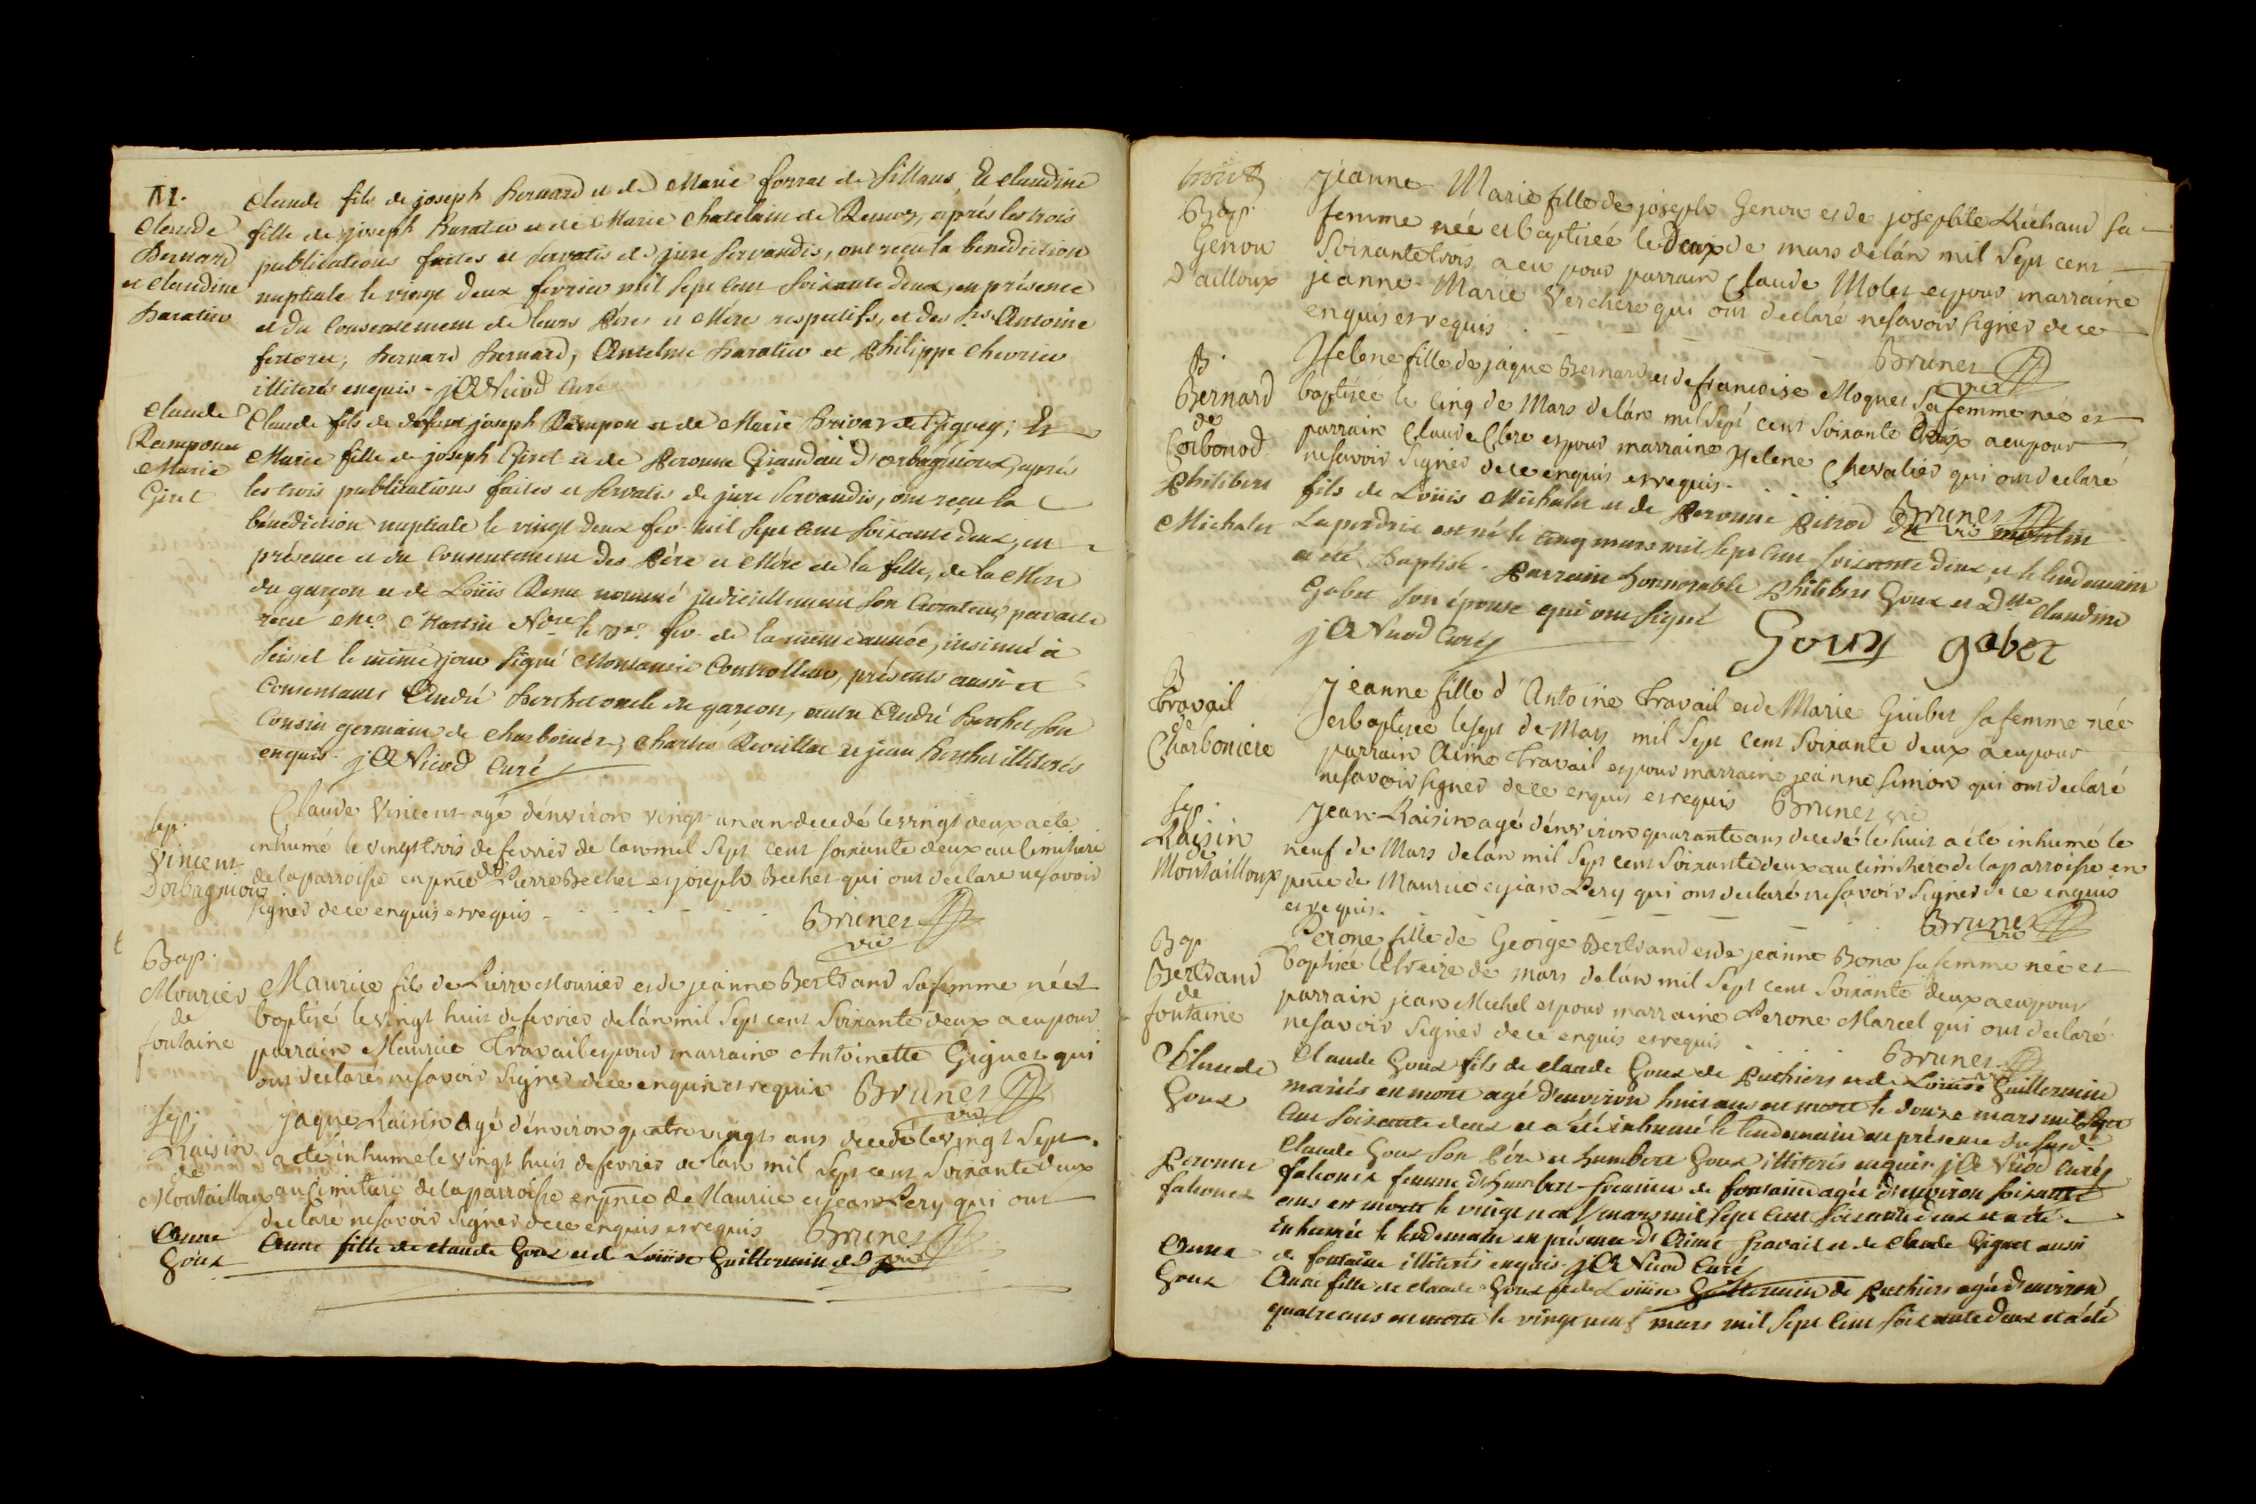 M.
Claude
Bernard
et Claudine
Baratier
Claude fils de joseph Bernard et de Marie forrat de Sillans, Et Claudine
fille de joseph Baratier et de Marie Chatelain de Remoz, aprés les trois
publications faites et servatis de jure servandis, ont reçu la bénédiction
nuptiale le vingt deux fevrier mil sept cent soixante deux, en présence
et du Consentement de leurs Péres et Mére respectifs, et des Srs Antoine
Bernard Bernard, Antelme Baratier et Philippe Chevrier
illiterés enquis - jA Nicod Curé
Claude
Rampon et
Marie
Giret
Claude fils de defunt joseph Rampon et de Marie Brivar de Et
Marie fille de joseph Giret et de Peronne Giandain d'orbagnioux, aprés
les trois publications faites et servatis de jure servandis, ont reçu la
bénédiction nuptiale le vingt deux fev. mil sept cent soixante deux, en
présence et du Consentement des Pére et Mére de la fille, de la Mére
du garçon et de Loüis Rena nommé judiciellement son Curateur, par acte
recu Me Martin Nore le fev. de la même année, insinué à
Seissel le même jour signé Montanier Controlleur, présents aussi et
Consentants André Berthet oncle du garçon, autre André Berthet son
Cousin germain de Charbonier, Charles Revillar et jean Berthet illiterés
enquis. jA Nicod Curé
Sep.
Vincent
Dorbagnioux
Claude Vincent agé d'environ vingt un an decedé le vingt deux a eté
inhumé le vingt trois de fevrier de l'an mil sept cent soixante deux au Cimitiere
de la parroisse en pnce de Pierre Bechet et joseph Bechet qui ont declaré ne savoir
signer de ce enquis et requis - Brunet vic
Bap.
Mourier
de
fontaine
Maurice fils de Pierre Mourier et de jeanne Bertrand sa femme né et
baptisé le vingt huit de fevrier de l'an mil sept cent soixante deux a eu pour
parrain Maurice Travail et pour marraine Antoinette Giguet qui
ont declaré ne savoir signer de ce enquis et requis Brunet vic
Sep.
Raisin
de
Montailloux
jaque Raisin agé d'environ quatre vingts ans decedé le vingt sept
a eté inhumé le vingt huit de fevrier de l'an mil sept cent soixante deux
au Cimitiere de la parroisse en pnce de Maurice et jean Pery qui ont
declaré ne savoir signer de ce enquis et requis Brunet
Anne
Goux
Anne fille de claude Goux et de Loüise Guillermin de
Bap.
Genou
D'ailloux
Jeanne-Marie fille de joseph Genou et de josephte Richaud sa
femme née et baptisée le deux de mars de l'an mil sept cent
soixante trois a eu pour parrain Claude Molet et pour marraine
jeanne-Marie Verchere qui ont declaré ne savoir signer de ce
enquis et requis - Brunet vic
B.
Bernard
de
Corbonod
Helene fille de jaque Bernard et de francoise Moquet sa femme née et
baptisée le cinq de Mars de l'an mil sept cent soixante deux a eu pour
parrain Claude Clerc et pour marraine Helene Chevalier qui ont declaré
ne savoir signer de ce enquis et requis. Brunet vic
Philibert
Michalet
fils de Loüis Michalet et de Peronne Pitrod du moulin
Laperdrix est né le cinq mars mil sept cent soixante deux et le lendemain
a eté Baptisé. Parrain honnorable Philibert Goux et Dlle Claudine
Gabet son épouse qui ont signé
jA Nicod Curé Goux gabet
B
Travail
de
Charboniere
Jeanne fille d'Antoine Travail et de Marie Guibet sa femme née
et baptisée le sept de Mars mil sept cent soixante deux a eu pour
parrain Aimé Travail et pour marraine jeanne Simon qui ont declaré
ne savoir signer de ce enquis et requis Brunet vic
Sep.
Raisin
de
Montailloux
Jean-Raisin agé d'environ quarante ans decedé le huit a eté inhumé le
neuf de Mars de l'an mil sept cent soixante deux au Cimitiere de la parroisse en
pnce de Maurice et jean Pery qui ont declaré ne savoir signer de ce enquis
et requis. Brunet vic
Bap.
Bertrand
de
fontaine
Perone fille de George Bertrand et de jeanne Bona sa femme née et
baptisée le treize de mars de l'an mil sept cent soixante deux a eu pour
parrain jean Michel et pour marraine Perone Marcel qui ont declaré
ne savoir signer de ce enquis et requis Brunet
Claude
Goux
Claude Goux fils de claude Goux de Puthiers et de Loüise Guillermin
mariés est mort agé d'environ huit ans est mort le douze mars mil sept
cent soixante deux et a été inhumé le lendemain en présence du susd.
Claude Goux son Pére et humbert Goux illiterés enquis jA Nicod Curé
Peronne
falconet
falconet femme d'humbert fournier de fontaine agée d'environ soixante
ans est morte le vingt mars mil sept cent soixante deux et a été
inhumée le lendemain en présence d'Aimé Travail et de Claude Giguet aussi
de fontaine illiterés enquis. jA Nicod Curé
Anne
Goux
Anne fille de claude Goux et de Loüise Guillermin de Puthiers agée d'environ
quatre ans est morte le vingt neuf mars mil sept cent soixante deux et a été